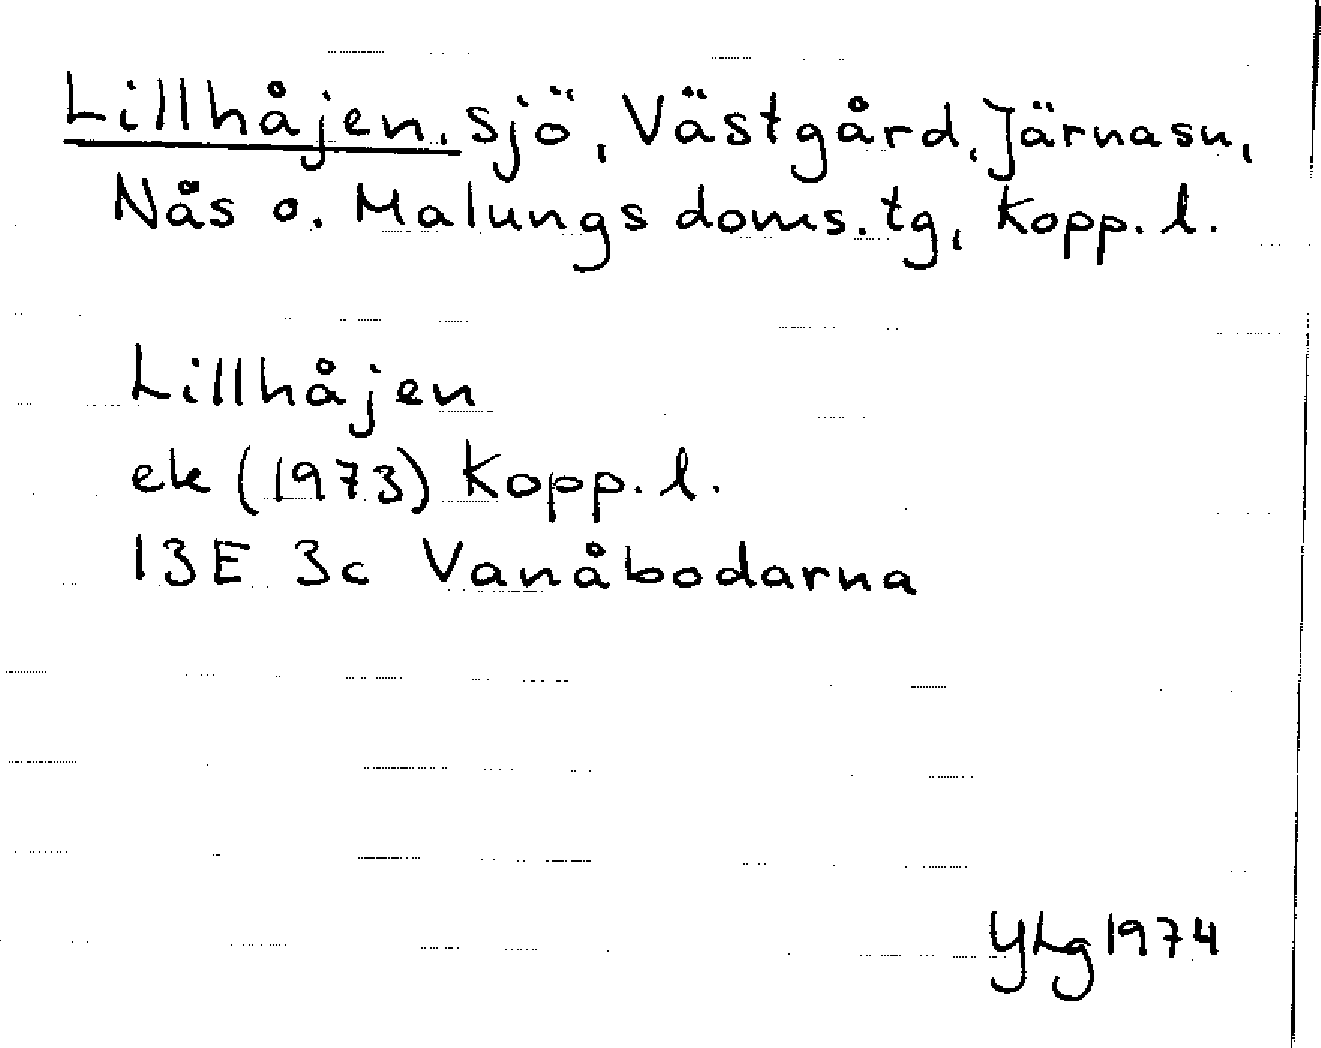 Lillhåjen, sjö, Västgård, Järnasn,
Nås o. Malungs doms. tg, Kopp. l.
Lillhåjen
ek (1973) Kopp. l.
13E 3c Vanåbodarna
YLg 1974